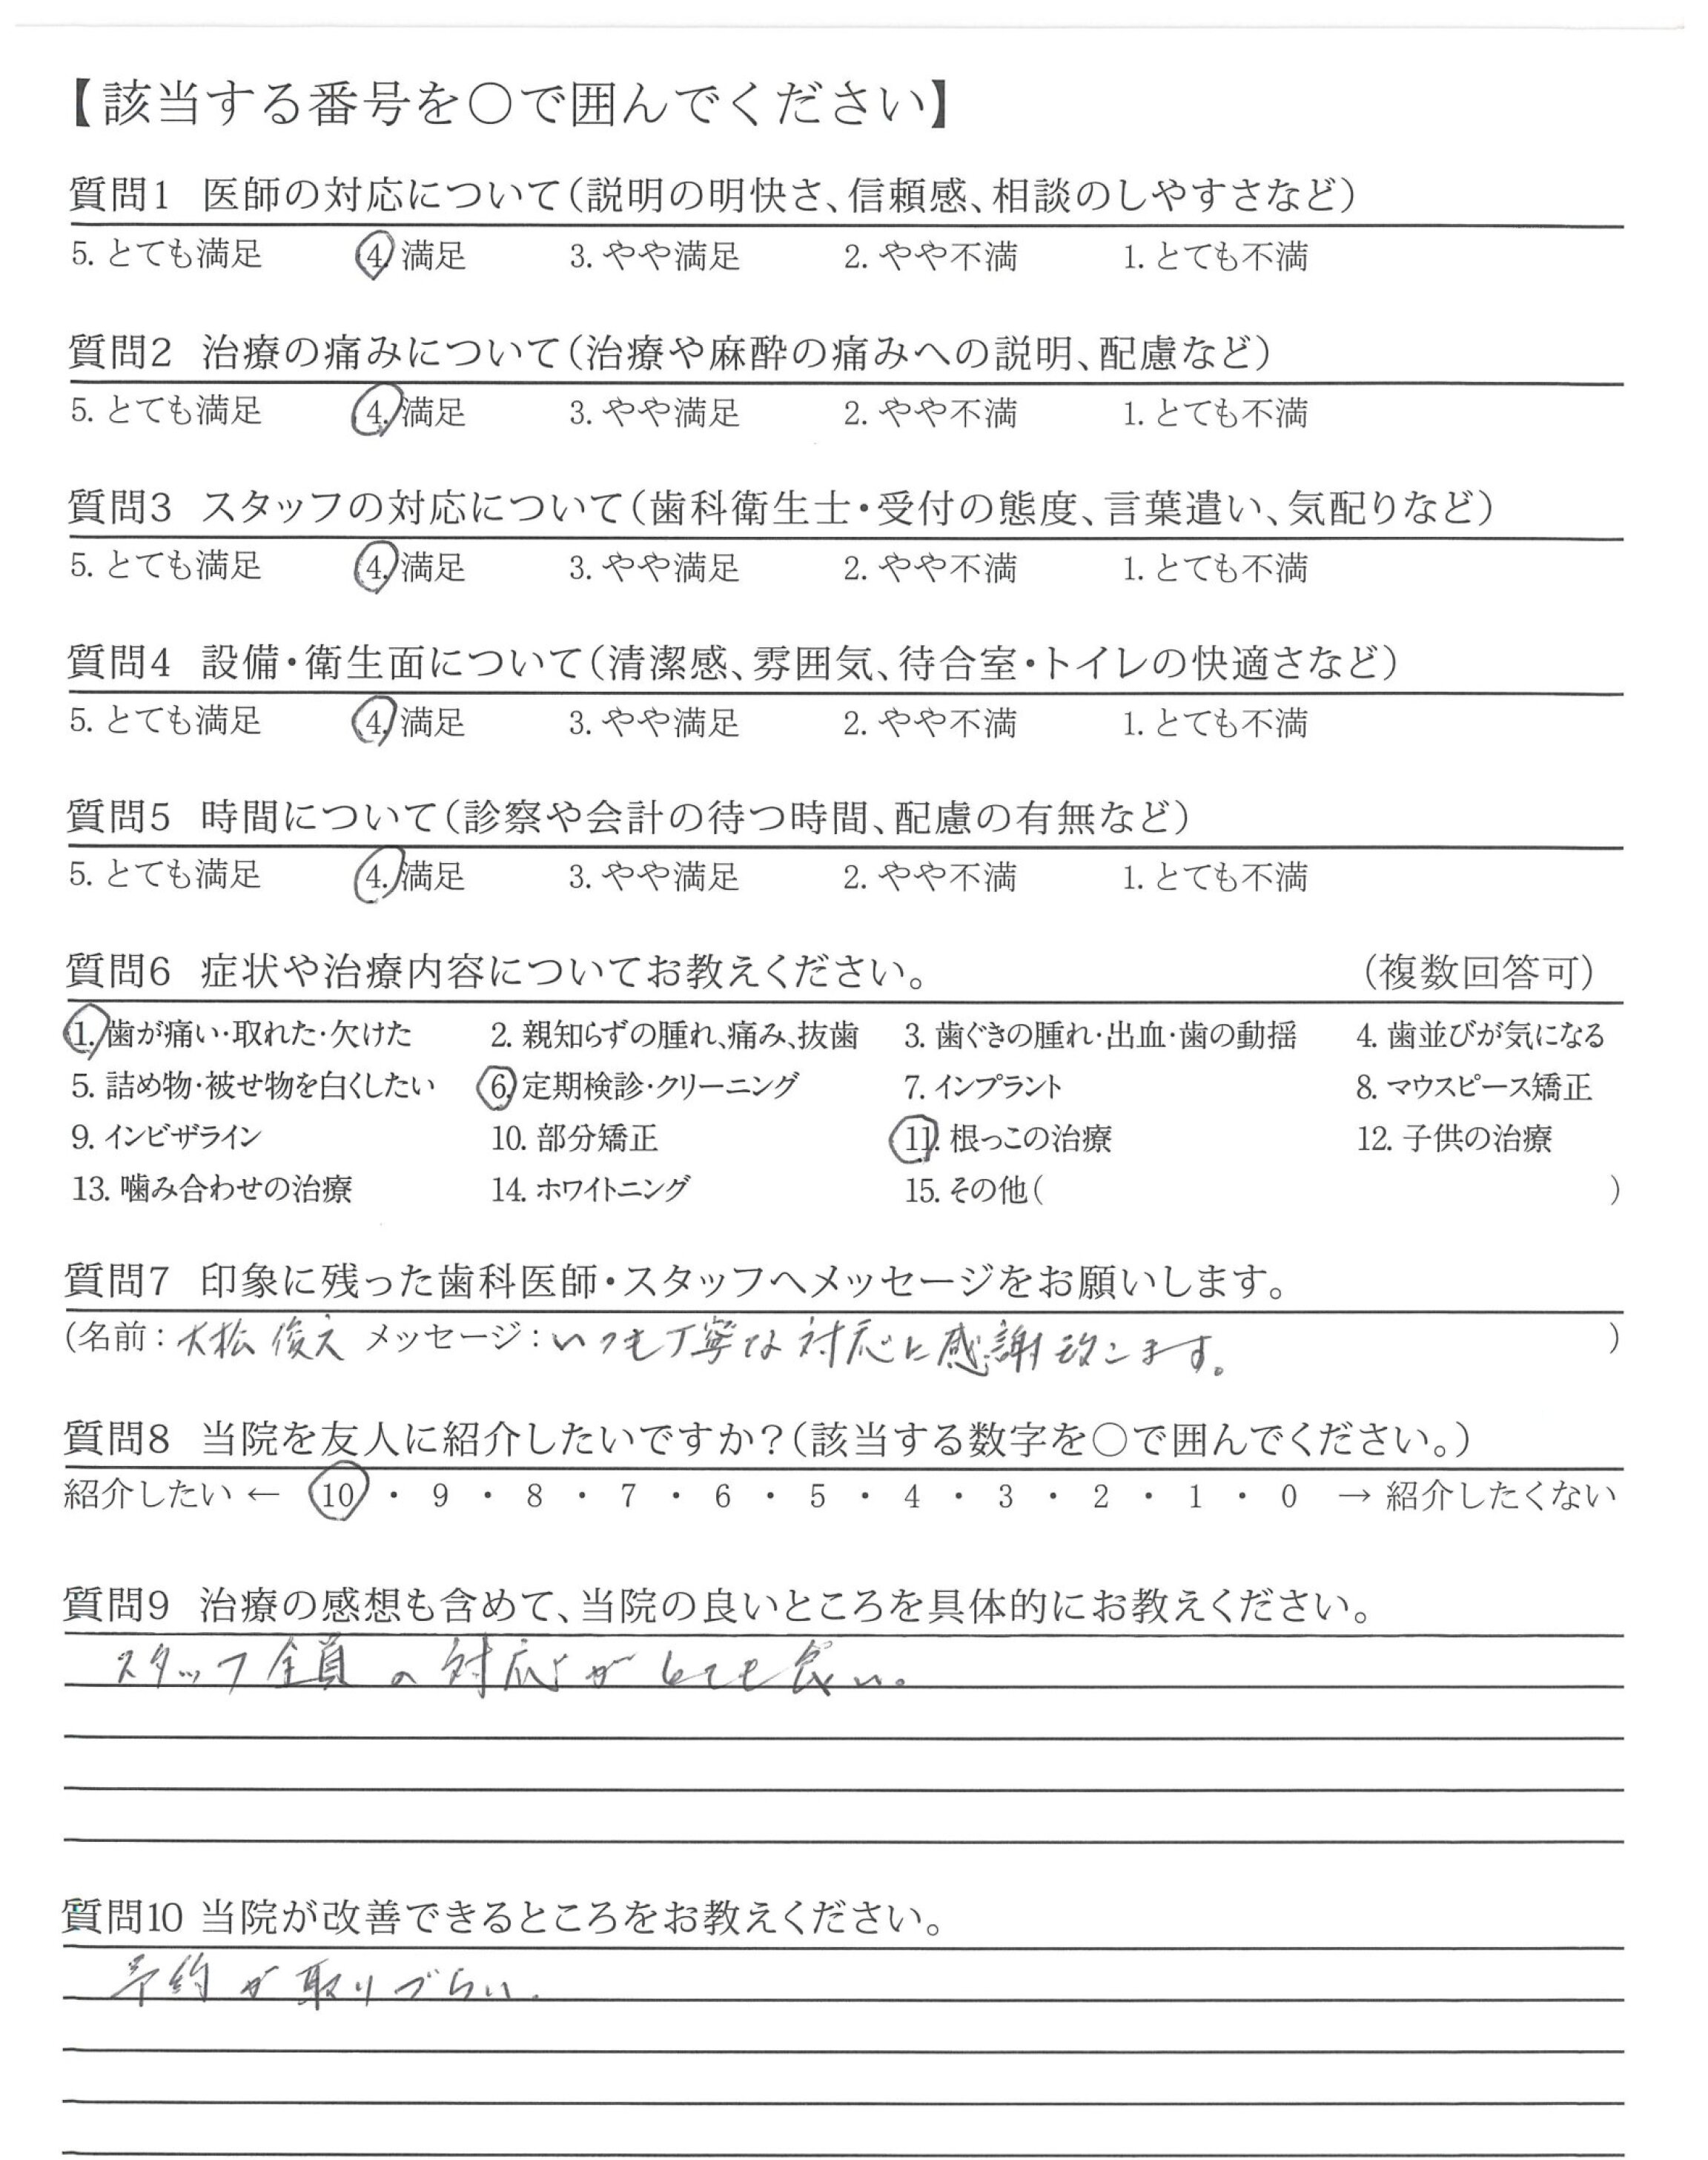 【該当する番号を○で囲んでください】
質問1 医師の対応について(説明の明快さ、信頼感、相談のしやすさなど)
5. とても満足 4. 満足 3. やや満足 2. やや不満 1. とても不満
質問2 治療の痛みについて(治療や麻酔の痛みへの説明、配慮など)
5. とても満足 4. 満足 3. やや満足 2. やや不満 1. とても不満
質問3 スタッフの対応について(歯科衛生士・受付の態度、言葉遣い、気配りなど)
5. とても満足 4. 満足 3. やや満足 2. やや不満 1. とても不満
質問4 設備・衛生面について(清潔感、雰囲気、待合室・トイレの快適さなど)
5. とても満足 4. 満足 3. やや満足 2. やや不満 1. とても不満
質問5 時間について(診察や会計の待つ時間、配慮の有無など)
5. とても満足 4. 満足 3. やや満足 2. やや不満 1. とても不満
質問6 症状や治療内容についてお教えください。 (複数回答可)
1. 歯が痛い・取れた・欠けた 2. 親知らずの腫れ、痛み、抜歯 3. 歯ぐきの腫れ・出血・歯の動揺 4. 歯並びが気になる
5. 詰め物・被せ物を白くしたい 6. 定期検診・クリーニング 7. インプラント 8. マウスピース矯正
9. インビザライン 10. 部分矯正 11. 根っこの治療 12. 子供の治療
13. 噛み合わせの治療 14. ホワイトニング 15. その他( )
質問7 印象に残った歯科医師・スタッフへメッセージをお願いします。
(名前: 大松 俊文 メッセージ: いつも丁寧な対応に感謝致します。 )
質問8 当院を友人に紹介したいですか?(該当する数字を○で囲んでください。)
紹介したい ← 10 ・ 9 ・ 8 ・ 7 ・ 6 ・ 5 ・ 4 ・ 3 ・ 2 ・ 1 ・ 0 → 紹介したくない
質問9 治療の感想も含めて、当院の良いところを具体的にお教えください。
スタッフ全員の対応がとても良い。
質問10 当院が改善できるところをお教えください。
予約が取りづらい.